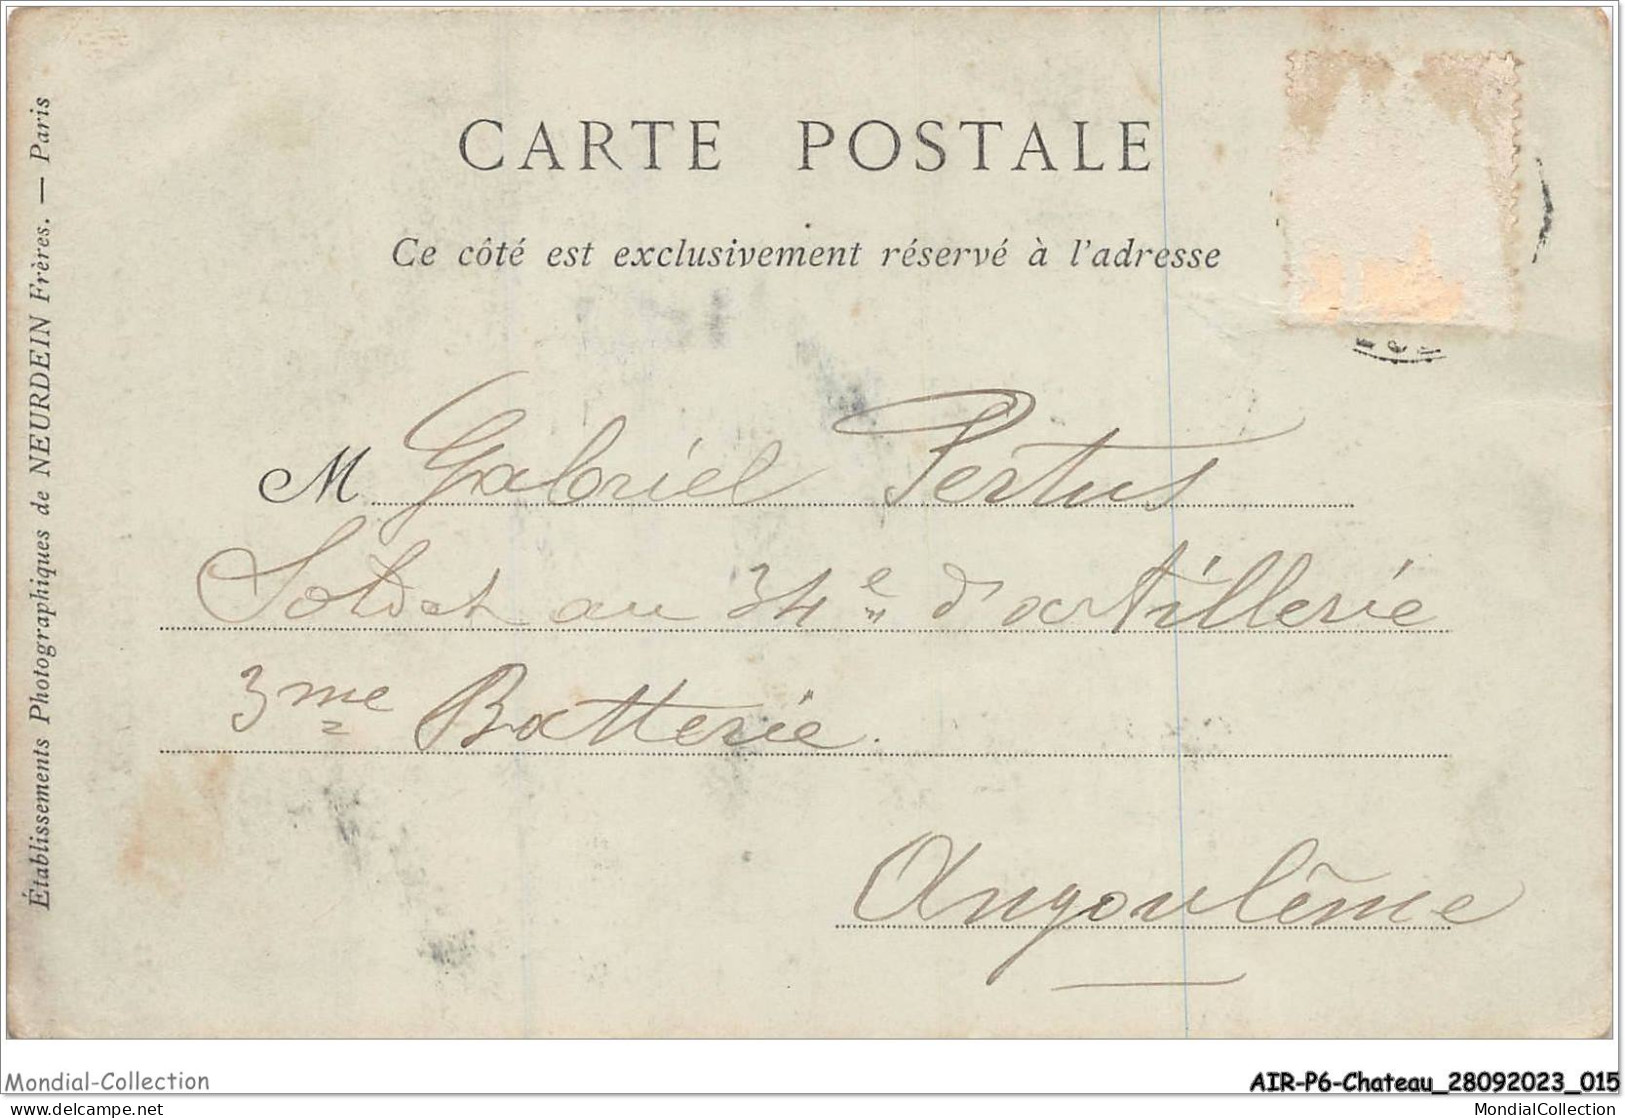 CARTE POSTALE
Ce côté est exclusivement réservé à l'adresse
M Gabriel Pertus
Soldat au 34e d'artillerie
3me Batterie.
Angoulême
Établissements Photographiques de NEURDEIN Frères. — Paris
Mondial-Collection
AIR-P6-Chateau_28092023_015
www.delcampe.net
MondialCollection